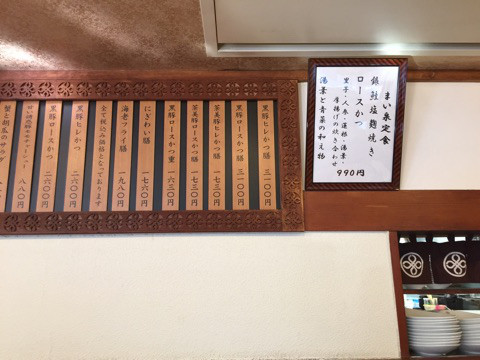 まい泉定食
銀鮭塩麹焼き
ロースかつ
里芋・人参・蓮根・湯葉・
厚揚げの炊き合わせ
湯葉と青菜の和え物
990円
黒豚ヒレかつ膳 三一〇〇円
黒豚ロースかつ膳 三一〇〇円
茶美豚ヒレかつ膳 一七三〇円
茶美豚ロースかつ膳 一七三〇円
黒豚ロースかつ重 一六三〇円
にぎわい膳 一七六〇円
海老フライ膳 一九八〇円
全て税込み価格となっております
黒豚ヒレかつ 二六〇〇円
黒豚ロースかつ 二六〇〇円
八八〇円
蟹と胡瓜のサラダ